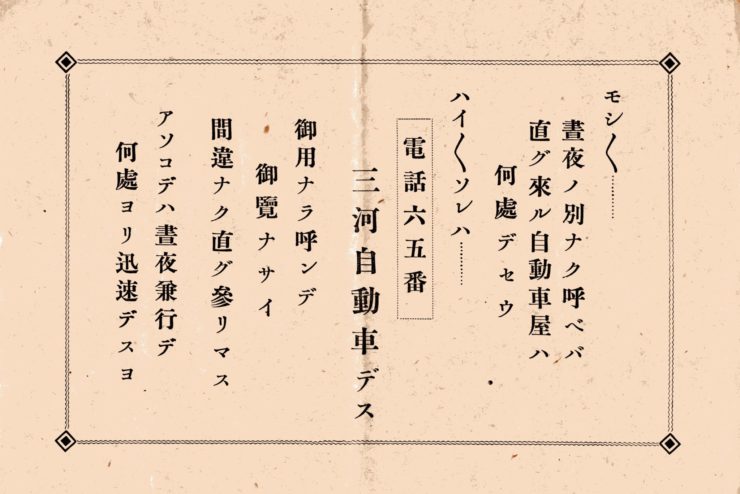 モシ〱…………
晝夜ノ別ナク呼ベバ
直グ來ル自動車屋ハ
何處デセウ
ハイ〱ソレハ…………
電話六五番
三河自動車デス
御用ナラ呼ンデ
御覽ナサイ
間違ナク直グ參リマス
アソコデハ晝夜兼行デ
何處ヨリ迅速デスヨ